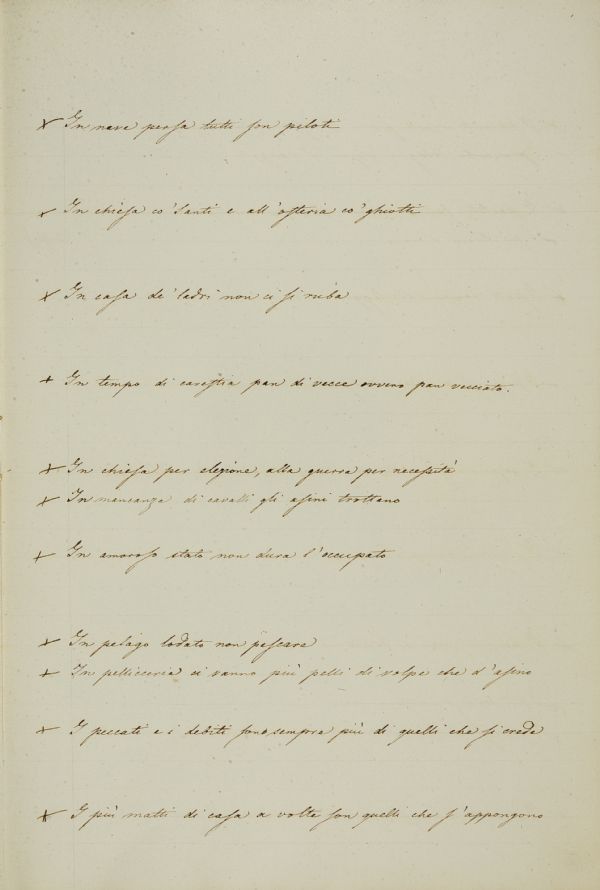 x In nave persa tutti son piloti
x In chiesa co' Santi e all'osteria co' ghiotti
x In casa de' ladri non ci si ruba
+ In tempo di carestia pan di vecce ovvero pan vecciato.
x In chiesa per elezione, alla guerra per necessità
x In mancanza di cavalli gli asini trottano
+ In amoroso stato non dura l'occupato
x In pelago lodato non pescare
+ In pellicceria ci vanno più pelli di volpe che d'asino
x I peccati e i debiti son sempre più di quelli che si crede
x I più matti di casa a volte son quelli che s'appongono